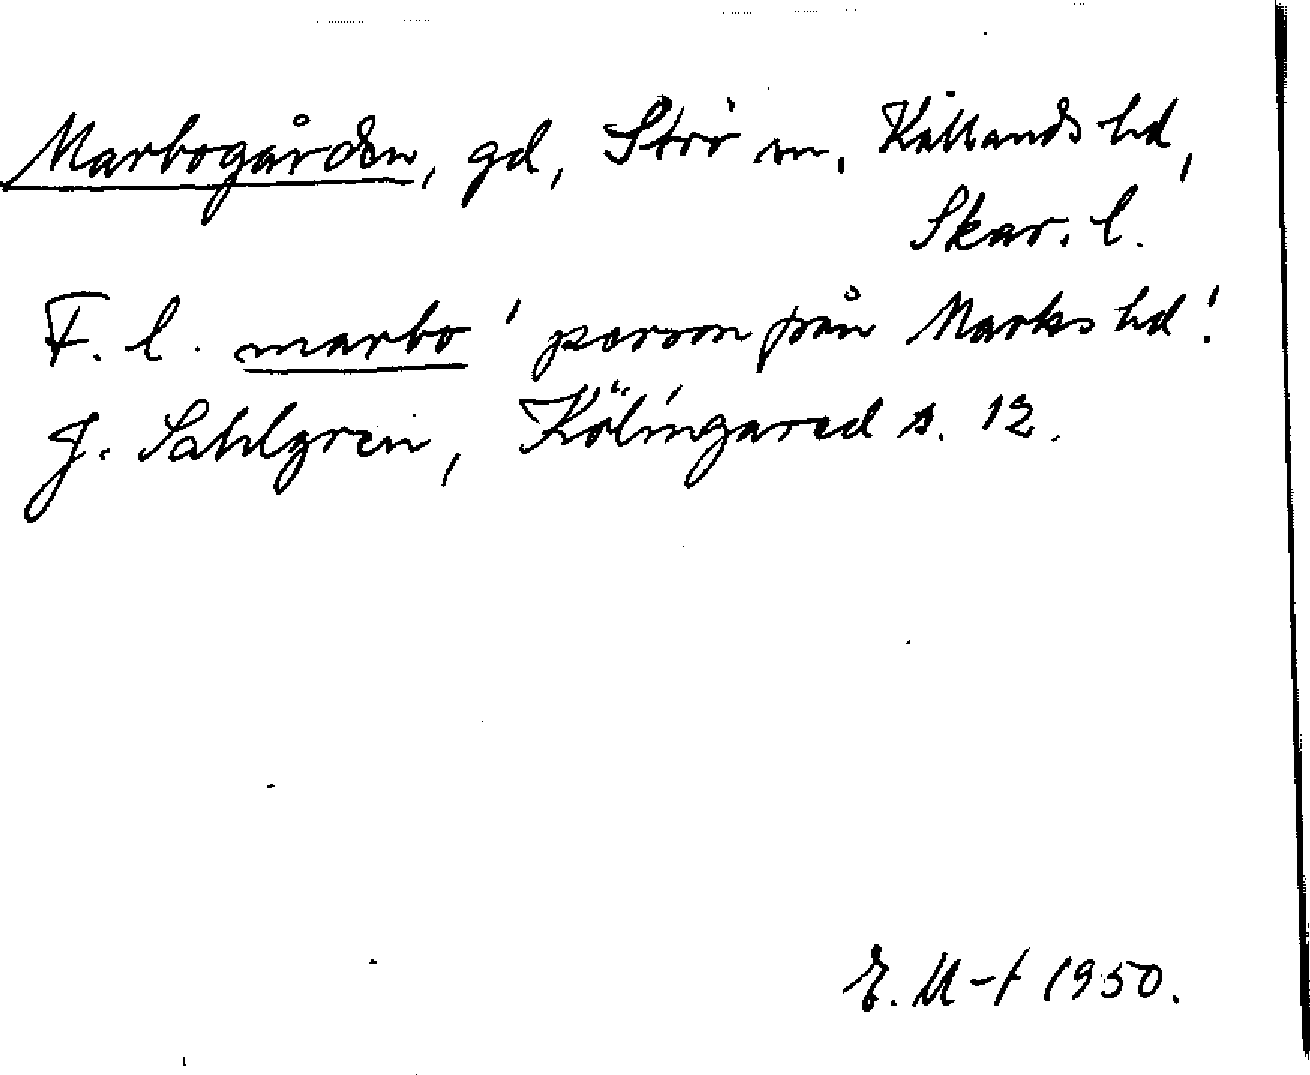 Marbogården, gd, Strö sn, Kållands hd,
Skar. l.
F. l. marbo 'person från Marks hd'.
J. Sahlgren, Kölingared s. 12.
E. M-t 1950.